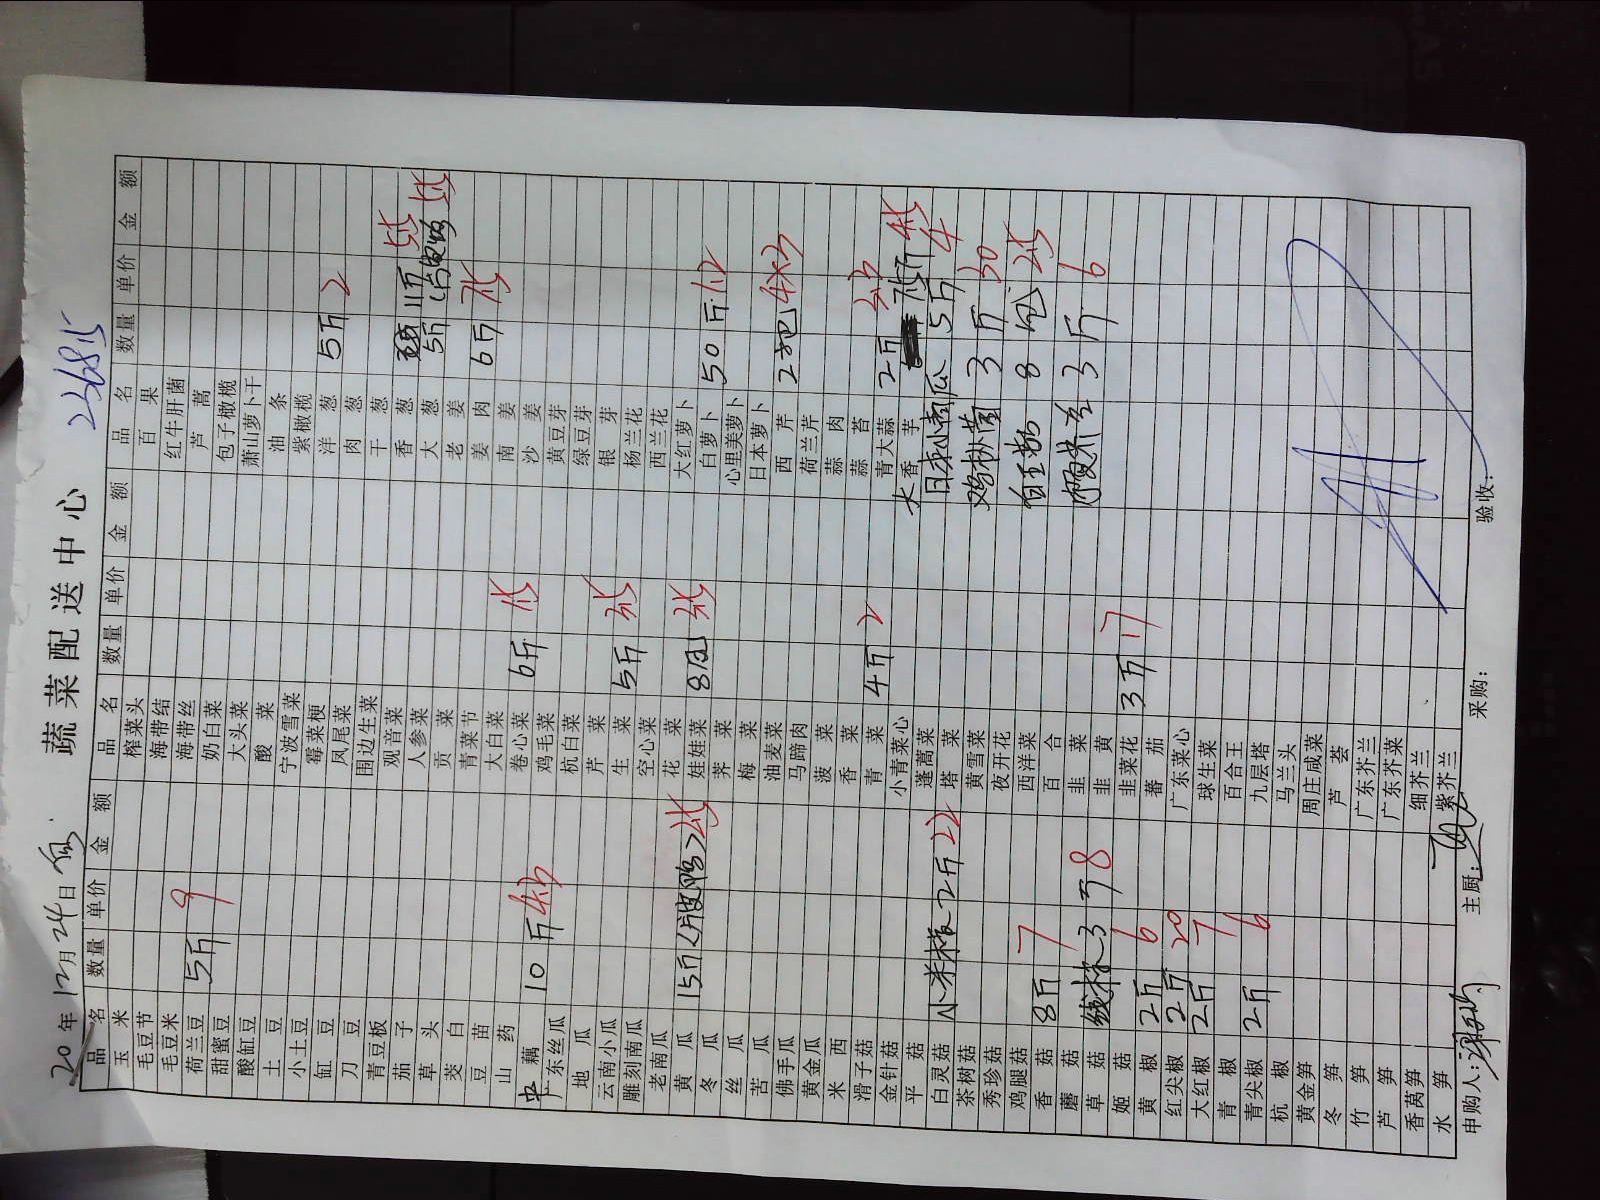 蔬菜配送中心
20 年 12月24日
品名 数量 单价 金额 品名 数量 单价 金额 品名 数量 单价 金额
玉米 榨菜头 百果
毛豆节 海带结 红牛肝菌
毛豆米 海带丝 芦蒿
荷兰豆 5斤 9 奶白菜 包子橄榄
甜蜜豆 大头菜 萧山萝卜干
酸缸豆 酸菜 油条
土豆 宁波雪菜 紫橄榄
小土豆 霉菜梗 洋葱 5斤 2
缸豆 凤尾菜 肉葱
刀豆 围边生菜 干葱
青豆板 观音菜 香葱 11斤
茄子 人参菜 大葱 5斤
草头 贡菜 老姜
茭白 青菜节 姜肉 6斤
豆苗 大白菜 南姜
山药 卷心菜 6斤 沙姜
藕 10斤 鸡毛菜 黄豆芽
广东丝瓜 杭白菜 绿豆芽
地瓜 芹菜 银芽
云南小瓜 生菜 5斤 杨兰花
雕刻南瓜 空心菜 西兰花
老南瓜 花菜 大红萝卜
黄瓜 15斤 娃娃菜 8包 白萝卜 50斤
冬瓜 荠菜 心里美萝卜
丝瓜 梅菜 日本萝卜
苦瓜 油麦菜 西芹 2把
佛手瓜 马蹄肉 荷兰芹
黄金瓜 菠菜 蒜肉
米西 香菜 蒜苔
滑子菇 青菜 4斤 2 青大蒜 2斤
金针菇 小青菜心 大香芋
平菇 蓬蒿菜 日本小南瓜 5斤 4
白灵菇 小米椒 2斤 22 塔菜
茶树菇 黄雪菜 鸡枞菌 3斤 30
秀珍菇 夜开花
鸡腿菇 西洋菜 白玉菇 8包
香菇 8斤 7 百合
蘑菇 韭菜 3斤 6
草菇 3斤 8 韭黄
姬菇 韭菜花 3斤 17
黄椒 2斤 6 蕃茄
红尖椒 2斤 20 广东菜心
大红椒 2斤 7 球生菜
青椒 百合王
青尖椒 2斤 6 九层塔
杭椒 马兰头
黄金笋 周庄咸菜
冬笋 芦荟
竹笋 广东芥兰
芦笋 广东芥菜
香莴笋 细芥兰
水笋 紫芥兰
申购人: 主厨: 采购: 验收: